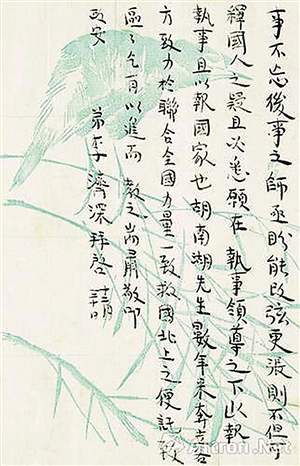 事不忘後事之師亟盼能改弦更張則不但可
釋國人之疑且必恙願在 執事領導之下以報
執事且以報國家也胡南湖先生數年来奔走各
方致力於聯合全國力量一致救國北上之便託致
區々乞有以進而 教之尚肅敬叩
政安
弟李濟深拜啓
Artron.Net